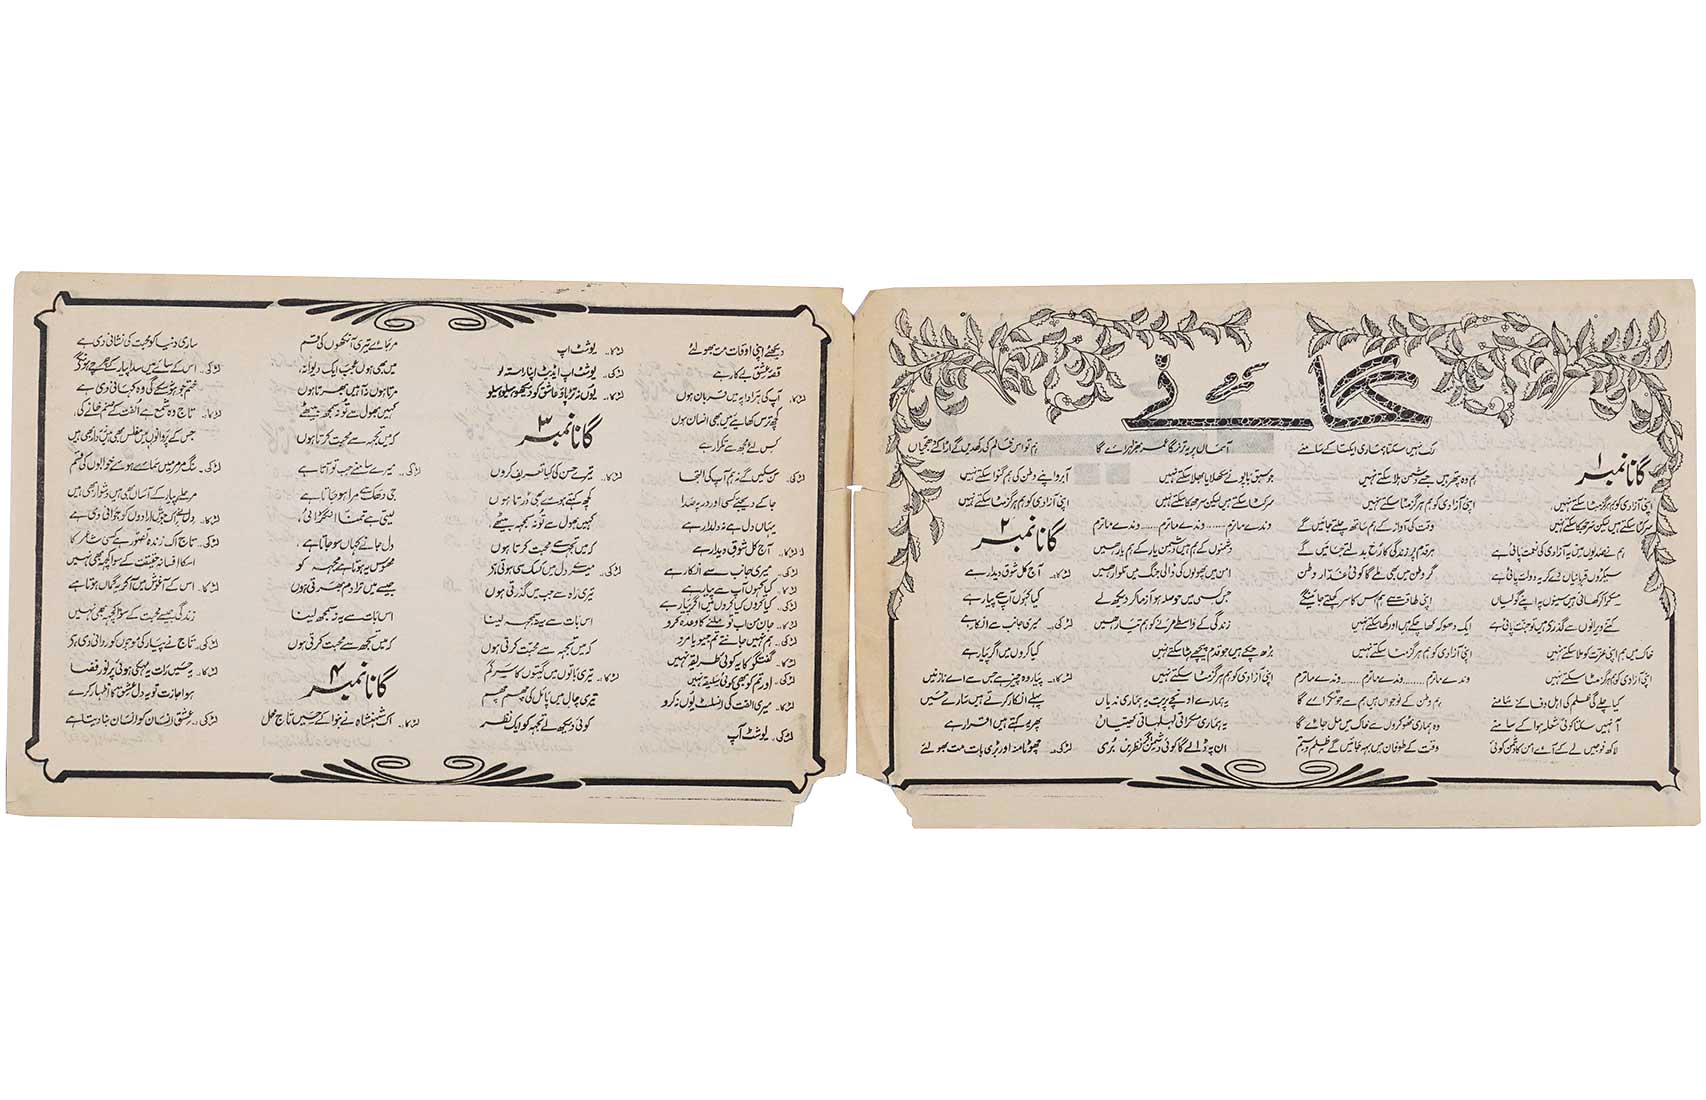 گانے
گانا نمبر ۱
اپنی آزادی کو ہم ہرگز مٹا سکتے نہیں
سر کٹا سکتے ہیں لیکن سر جھکا سکتے نہیں
ہم نے صدیوں میں یہ آزادی کی نعمت پائی ہے
سیکڑوں قربانیاں دے کر یہ دولت پائی ہے
مسکرا کر کھائی ہیں سینوں پہ اپنے گولیاں
کتنے ویرانوں سے گذرے ہیں تو جنت پائی ہے
خاک میں ہم اپنی عزت کو ملا سکتے نہیں
اپنی آزادی کو ہم ہرگز مٹا سکتے نہیں
کیا چلے گی ظلم کی اہل وفا کے سامنے
آ نہیں سکتا کوئی شعلہ ہوا کے سامنے
لاکھ فوجیں لے کے آئے امن کا دشمن کوئی
رک نہیں سکتا ہماری ایکتا کے سامنے
ہم وہ پتھر ہیں جسے دشمن ہلا سکتے نہیں
اپنی آزادی کو ہم ہرگز مٹا سکتے نہیں
وقت کی آواز کے ہم ساتھ چلتے جائیں گے
ہر قدم پر زندگی کا رخ بدلتے جائیں گے
گر وطن میں بھی ملے گا کوئی غدار وطن
اپنی طاقت سے ہم اس کا سر کچلتے جائینگے
ایک دھوکہ کھا چکے ہیں اور کھا سکتے نہیں
اپنی آزادی کو ہم ہرگز مٹا سکتے نہیں
وندے ماترم ...... وندے ماترم ...... وندے ماترم
ہم وطن کے نوجواں ہیں ہم سے جو ٹکرائے گا
وہ ہماری ٹھوکروں سے خاک میں مل جائے گا
وقت کے طوفان میں بہہ جائیں گے ظلم و ستم
آسماں پر یہ ترنگا عمر بھر لہرائے گا
جو سبق باپو نے سکھلایا بھلا سکتے نہیں
سر کٹا سکتے ہیں لیکن سر جھکا سکتے نہیں
وندے ماترم ...... وندے ماترم ...... وندے ماترم
دشمنوں کے ہم ہیں دشمن یار کے ہم یار ہیں
امن میں پھولوں کی ڈالی جنگ میں تلوار ہیں
جس کسی میں حوصلہ ہو آزما کر دیکھ لے
زندگی کے واسطے مرنے کو ہم تیار ہیں
بڑھ چکے ہیں جو قدم پیچھے ہٹا سکتے نہیں
اپنی آزادی کو ہم ہرگز مٹا سکتے نہیں
یہ ہمارے اونچے پربت یہ ہماری ندیاں
یہ ہماری مسکراتی لہلہاتی کھیتیاں
ان پہ ڈالے گا کوئی دشمن اگر نظریں بُری
ہم تو اس ظالم کی رکھ دیں گے اڑا کر دھجیاں
آبرو اپنے وطن کی ہم گنوا سکتے نہیں
اپنی آزادی کو ہم ہرگز مٹا سکتے نہیں
گانا نمبر ۲
لڑکا۔۔ آج کل شوق دیدار ہے
کیا کہوں آپ سے پیار ہے
لڑکی۔۔ میری جانب سے انکار ہے
کیا کروں میں اگر پیار ہے
لڑکا۔۔ پیار وہ چیز ہے جس سے اے نازنیں
پہلے انکار کرتے ہیں سارے حسیں
پھر یہ کہتے ہیں اقرار ہے
لڑکی۔۔ چھوٹا منہ اور بڑی بات مت بھولئے
دیکھئے اپنی اوقات مت بھولئے
قصہ عشق بے کار ہے
لڑکا۔۔ آپ کی ہر ادا پہ میں قربان ہوں
کچھ ترس کھائیے میں بھی انسان ہوں
کس لئے مجھ سے تکرار ہے
لڑکی۔ سن سکیں گے نہ ہم آپ کی التجا
جا کے دیجئے کسی اور در پہ صدا
یہاں دل ہے نہ دلدار ہے
لڑکا۔۔ آج کل شوق دیدار ہے
لڑکی۔۔ میری جانب سے انکار ہے
لڑکا۔۔ کیا کہوں آپ سے پیار ہے
لڑکی۔۔ کیا کروں کیا کروں میں اگر پیار ہے
لڑکا۔۔ جان من اب تو ملنے کا وعدہ کرو
لڑکی۔۔ ہم نہیں جانتے تم جیو یا مرو
لڑکا۔۔ گفتگو کا یہ کوئی طریقہ نہیں
لڑکی۔۔ اور تم کو بھی کوئی سلیقہ نہیں
لڑکا۔۔ میری الفت کی انسلٹ یوں نہ کرو
لڑکی۔۔ یو شٹ آپ
لڑکا۔۔ یو شٹ اپ
لڑکی۔۔ یو شٹ اپ ایڈیٹ اپنا راستہ لو
لڑکا۔۔ یوں نہ تڑپاؤ عاشق کو دیکھو سلو سلو
گانا نمبر ۳
تیرے حسن کی کیا تعریف کروں
کچھ کہتے ہوئے بھی ڈرتا ہوں
کہیں بھول سے تو نہ سمجھ بیٹھے
کہ میں تجھ سے محبت کرتا ہوں
لڑکی۔۔ میرے دل میں کسک سی ہوتی ہے
تیری راہ سے جب میں گذرتی ہوں
اس بات سے یہ نہ سمجھ لینا
کہ میں تجھ سے محبت کرتی ہوں
لڑکا۔۔ تیری باتوں میں گیتوں کا سرگم
تیری چال میں پائل کی چھم چھم
کوئی دیکھ لے تجھ کو ایک نظر
مر جائے تیری آنکھوں کی قسم
میں بھی ہوں عجب ایک دیوانہ
مرتا ہوں نہ آہیں بھرتا ہوں
کہیں بھول سے تو نہ سمجھ بیٹھے
کہ میں تجھ سے محبت کرتا ہوں
لڑکی۔۔ میرے سامنے جب تو آتا ہے
جی دھک سے مرا ہو جاتا ہے
لیتی ہے تمنا انگڑائی
دل جانے کہاں سو جاتا ہے
محسوس یہ ہوتا ہے مجھ کو
جیسے میں ترا دم بھرتی ہوں
اس بات سے یہ نہ سمجھ لینا
کہ میں تجھ سے محبت کرتی ہوں
گانا نمبر ۴
لڑکا۔۔ اک شہنشاہ نے بنوا کے حسیں تاج محل
ساری دنیا کو محبت کی نشانی دی ہے
لڑکی۔ اس کے سائے میں سدا پیار کے چرچے ہونگے
ختم جو ہو نہ سکے گی وہ کہانی دی ہے
لڑکا۔۔ تاج وہ شمع ہے الفت کے صنم خانے کی
جس کے پروانوں میں مفلس بھی ہیں زردار بھی ہیں
لڑکی۔ سنگ مرمر میں سمائے ہوئے خوابوں کی قسم
مرحلے پیار کے آساں بھی ہیں دشوار بھی ہیں
لڑکا۔۔ دل نے اک جوش ارادوں کو جوانی دی ہے
لڑکی۔۔ تاج اک زندہ تصور ہے کسی شاعر کا
اس کا افسانہ حقیقت کے سوا کچھ بھی نہیں
لڑکا۔۔ اس کے آغوش میں آ کر یہ گماں ہوتا ہے
زندگی جیسے محبت کے سوا کچھ بھی نہیں
لڑکی۔۔ تاج نے پیار کی موجوں کو روانی دی ہے
لڑکا۔۔ یہ حسیں رات یہ مہکی ہوئی پر نور فضا
ہو اجازت تو یہ دل عشق کا اظہار کرے
لڑکی۔۔ عشق انسان کو انسان بنا دیتا ہے